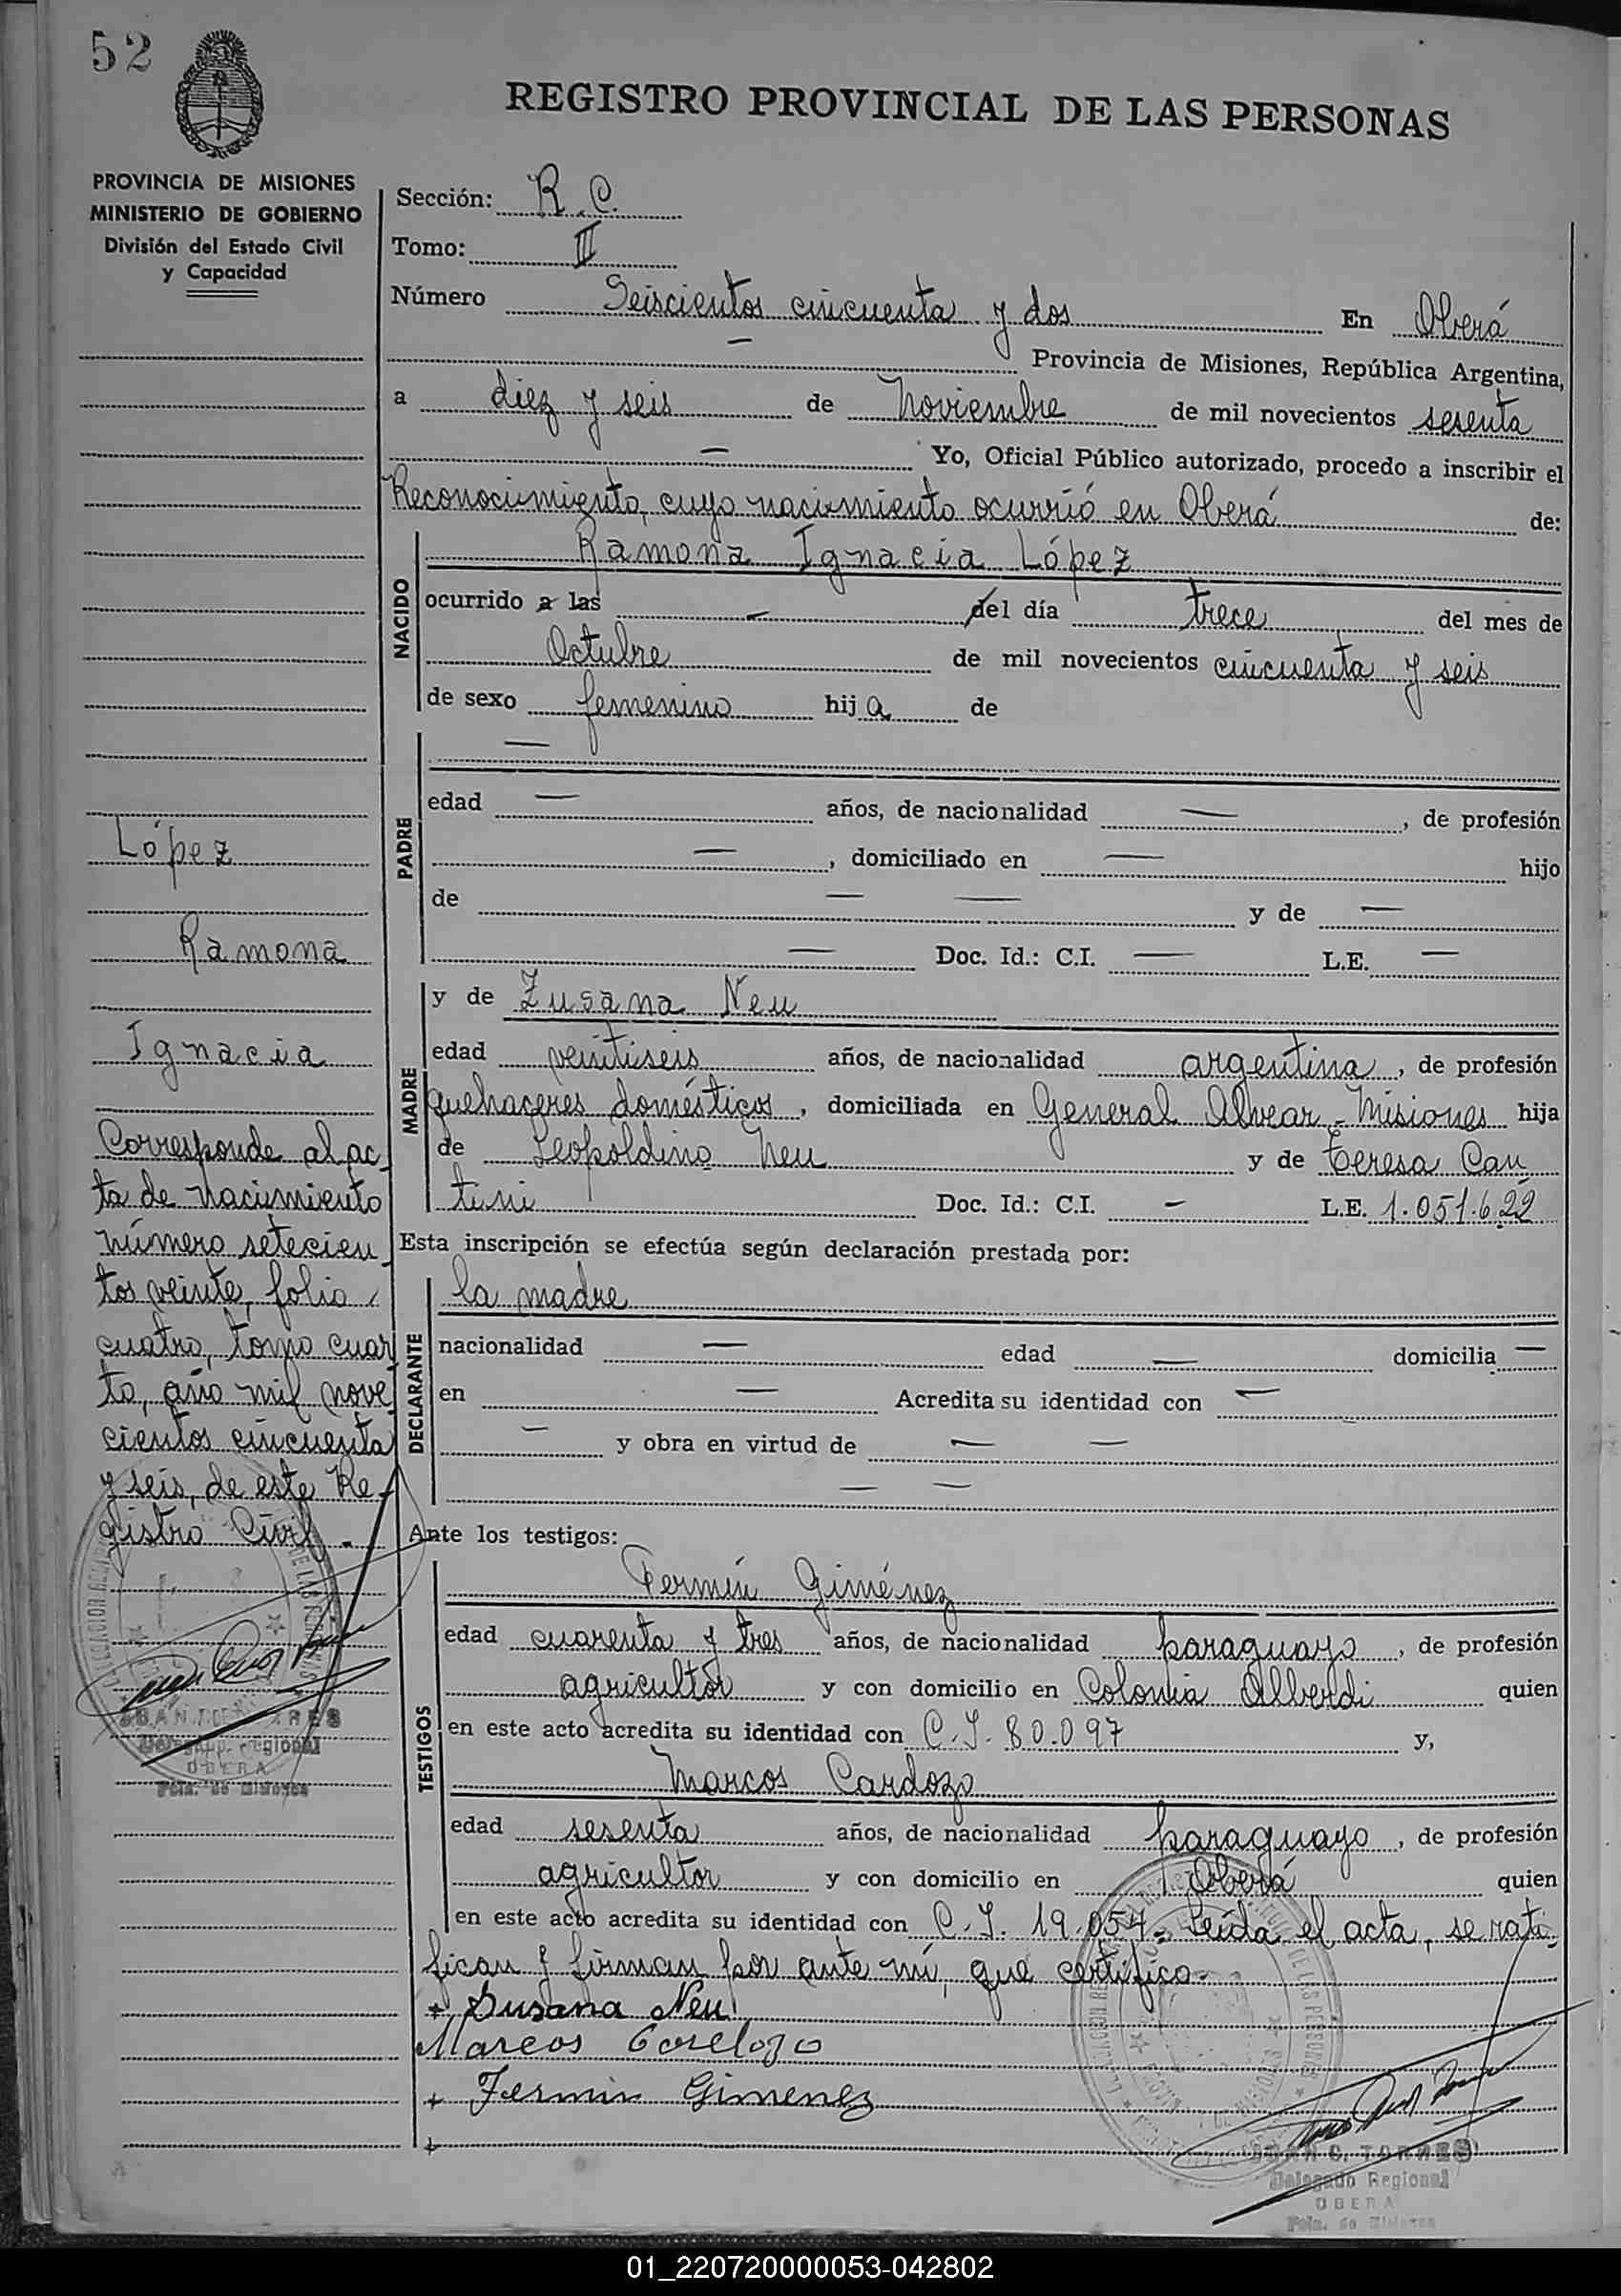 52
REGISTRO PROVINCIAL DE LAS PERSONAS
PROVINCIA DE MISIONES
MINISTERIO DE GOBIERNO
División del Estado Civil
y Capacidad
Sección: R.C.
Tomo: II
Número Seiscientos cincuenta y dos En Oberá
— Provincia de Misiones, República Argentina,
a diez y seis de Noviembre de mil novecientos sesenta
— Yo, Oficial Público autorizado, procedo a inscribir el
Reconocimiento, cuyo nacimiento ocurrió en Oberá de:
NACIDO
Ramona Ignacia López
ocurrido a las — del día trece del mes de
Octubre de mil novecientos cincuenta y seis
de sexo femenino hija de
PADRE
—
edad — años, de nacionalidad —, de profesión
—, domiciliado en — hijo
de — — y de —
— Doc. Id.: C.I. — L.E. —
MADRE
y de Zusana Neu
edad veintiseis años, de nacionalidad argentina, de profesión
quehaceres domésticos, domiciliada en General Alvear - Misiones hija
de Leopoldino Neu y de Teresa Can
tini Doc. Id.: C.I. — L.E. 1.051.622
Esta inscripción se efectúa según declaración prestada por:
DECLARANTE
la madre
nacionalidad — edad — domicilia —
en — Acredita su identidad con —
— y obra en virtud de — —
— —
Ante los testigos:
TESTIGOS
Fermín Giménez
edad cuarenta y tres años, de nacionalidad paraguayo, de profesión
agricultor y con domicilio en Colonia Alberdi quien
en este acto acredita su identidad con C.I. 80.097 y,
Marcos Cardozo
edad sesenta años, de nacionalidad paraguayo, de profesión
agricultor y con domicilio en Oberá quien
en este acto acredita su identidad con C.I. 19.054= Leída el acta, se rati-
fican y firman por ante mí, que certifico.-
+ Susana Neu
Marcos Cardozo
+ Fermin Gimenez
+
López
Ramona
Ignacia
Corresponde al ac-
ta de nacimiento
número setecien-
tos veinte, folio
cuatro, tomo cuar
to, año mil nove
cientos cincuenta
y seis, de este Re-
gistro Civil.-
Regional
OBERA
Pcia. de Misiones
C. TORRES
Delegado Regional
OBERA
Pcia. de Misiones
01_220720000053-042802